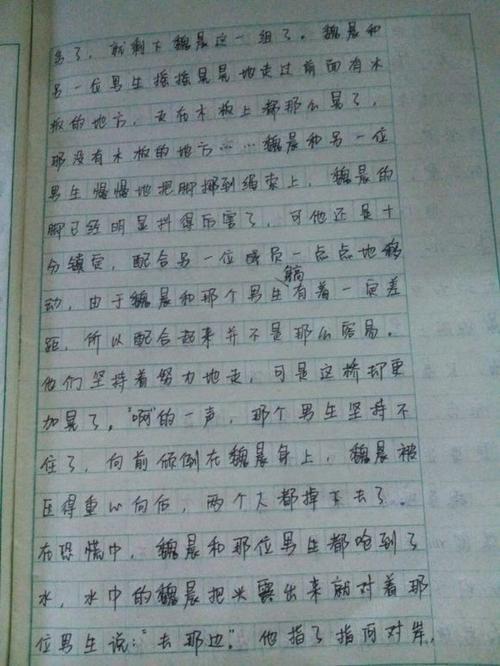 多了，就剩下魏晨这一组了。魏晨和
另一位男生摇摇晃晃地走过前面有木
板的地方，走在木板上都那么晃了，
那没有木板的地方……魏晨和另一位
男生慢慢地把脚挪到绳索上，魏晨的
脚已经明显抖得厉害了，可他还是十
分镇定，配合另一位队员一点点地移
动，由于魏晨和那个男生有着一定差
躺
距，所以配合起来并不是那么容易。
他们坚持着努力地走，可是这桥却更
加晃了。“啊”的一声，那个男生坚持不
住了，向前倾倒在魏晨身上，魏晨被
压得重心向后，两个人都掉下去了。
在恐慌中，魏晨和那位男生都呛到了
水，水中的魏晨把头露出来就对着那
位男生说：“去那边”他指了指河对岸，